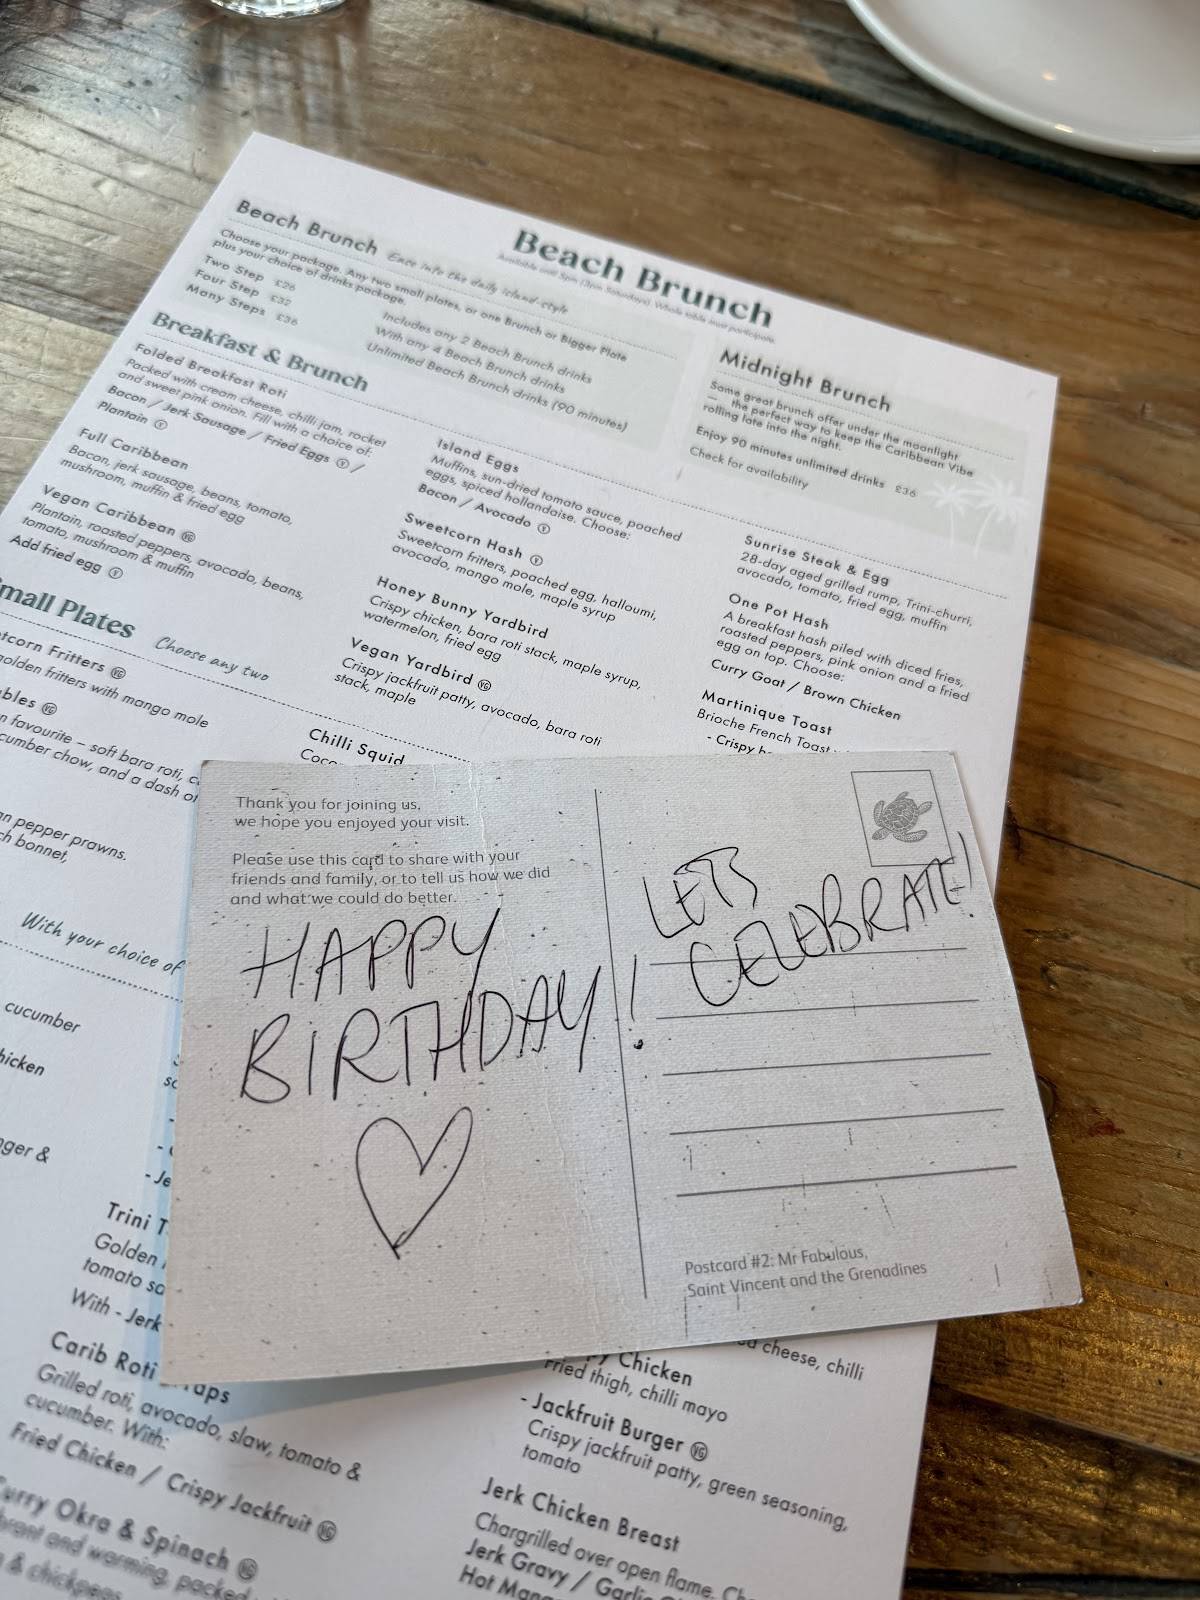 Beach Brunch
Available until 5pm (3pm Saturdays). Whole table must participate.
Beach Brunch Ease into the daily island-style
Choose your package. Any two small plates, or one Brunch or Bigger Plate
plus your choice of drinks package.
Two Step £26 Includes any 2 Beach Brunch drinks
Four Step £32 With any 4 Beach Brunch drinks
Many Steps £36 Unlimited Beach Brunch drinks (90 minutes)
Midnight Brunch
Same great brunch offer under the moonlight
— the perfect way to keep the Caribbean Vibe
rolling late into the night.
Enjoy 90 minutes unlimited drinks £36
Check for availability
Breakfast & Brunch
Folded Breakfast Roti
Packed with cream cheese, chilli jam, rocket
and sweet pink onion. Fill with a choice of:
Bacon / Jerk Sausage / Fried Eggs V /
Plantain V
Full Caribbean
Bacon, jerk sausage, beans, tomato,
mushroom, muffin & fried egg
Vegan Caribbean VG
Plantain, roasted peppers, avocado, beans,
tomato, mushroom & muffin
Add fried egg V
Island Eggs
Muffins, sun-dried tomato sauce, poached
eggs, spiced hollandaise. Choose:
Bacon / Avocado V
Sweetcorn Hash V
Sweetcorn fritters, poached egg, halloumi,
avocado, mango mole, maple syrup
Honey Bunny Yardbird
Crispy chicken, bara roti stack, maple syrup,
watermelon, fried egg
Vegan Yardbird VG
Crispy jackfruit patty, avocado, bara roti
stack, maple
Sunrise Steak & Egg
28-day aged grilled rump, Trini-churri,
avocado, tomato, fried egg, muffin
One Pot Hash
A breakfast hash piled with diced fries,
roasted peppers, pink onion and a fried
egg on top. Choose:
Curry Goat / Brown Chicken
Martinique Toast
Brioche French Toast
- Crispy
mall Plates Choose any two
tcorn Fritters VG
golden fritters with mango mole
bles VG
n favourite – soft bara roti, c
cumber chow, and a dash of
n pepper prawns.
ch bonnet,
Chilli Squid
Coco
With your choice of
cucumber
hicken
nger &
- Je
Thank you for joining us,
we hope you enjoyed your visit.
Please use this card to share with your
friends and family, or to tell us how we did
and what we could do better.
HAPPY
BIRTHDAY!
LETS
CELEBRATE!
Postcard #2: Mr Fabulous,
Saint Vincent and the Grenadines
Trini T
Golden
tomato sa
With - Jerk
Carib Roti Wraps
Grilled roti, avocado, slaw, tomato &
cucumber. With:
Fried Chicken / Crispy Jackfruit VG
Curry Okra & Spinach VG
brant and warming, packed
& chickpeas
cheese, chilli
y Chicken
Fried thigh, chilli mayo
- Jackfruit Burger VG
Crispy jackfruit patty, green seasoning,
tomato
Jerk Chicken Breast
Chargrilled over open flame. Ch
Jerk Gravy / Garlic
Hot Mang